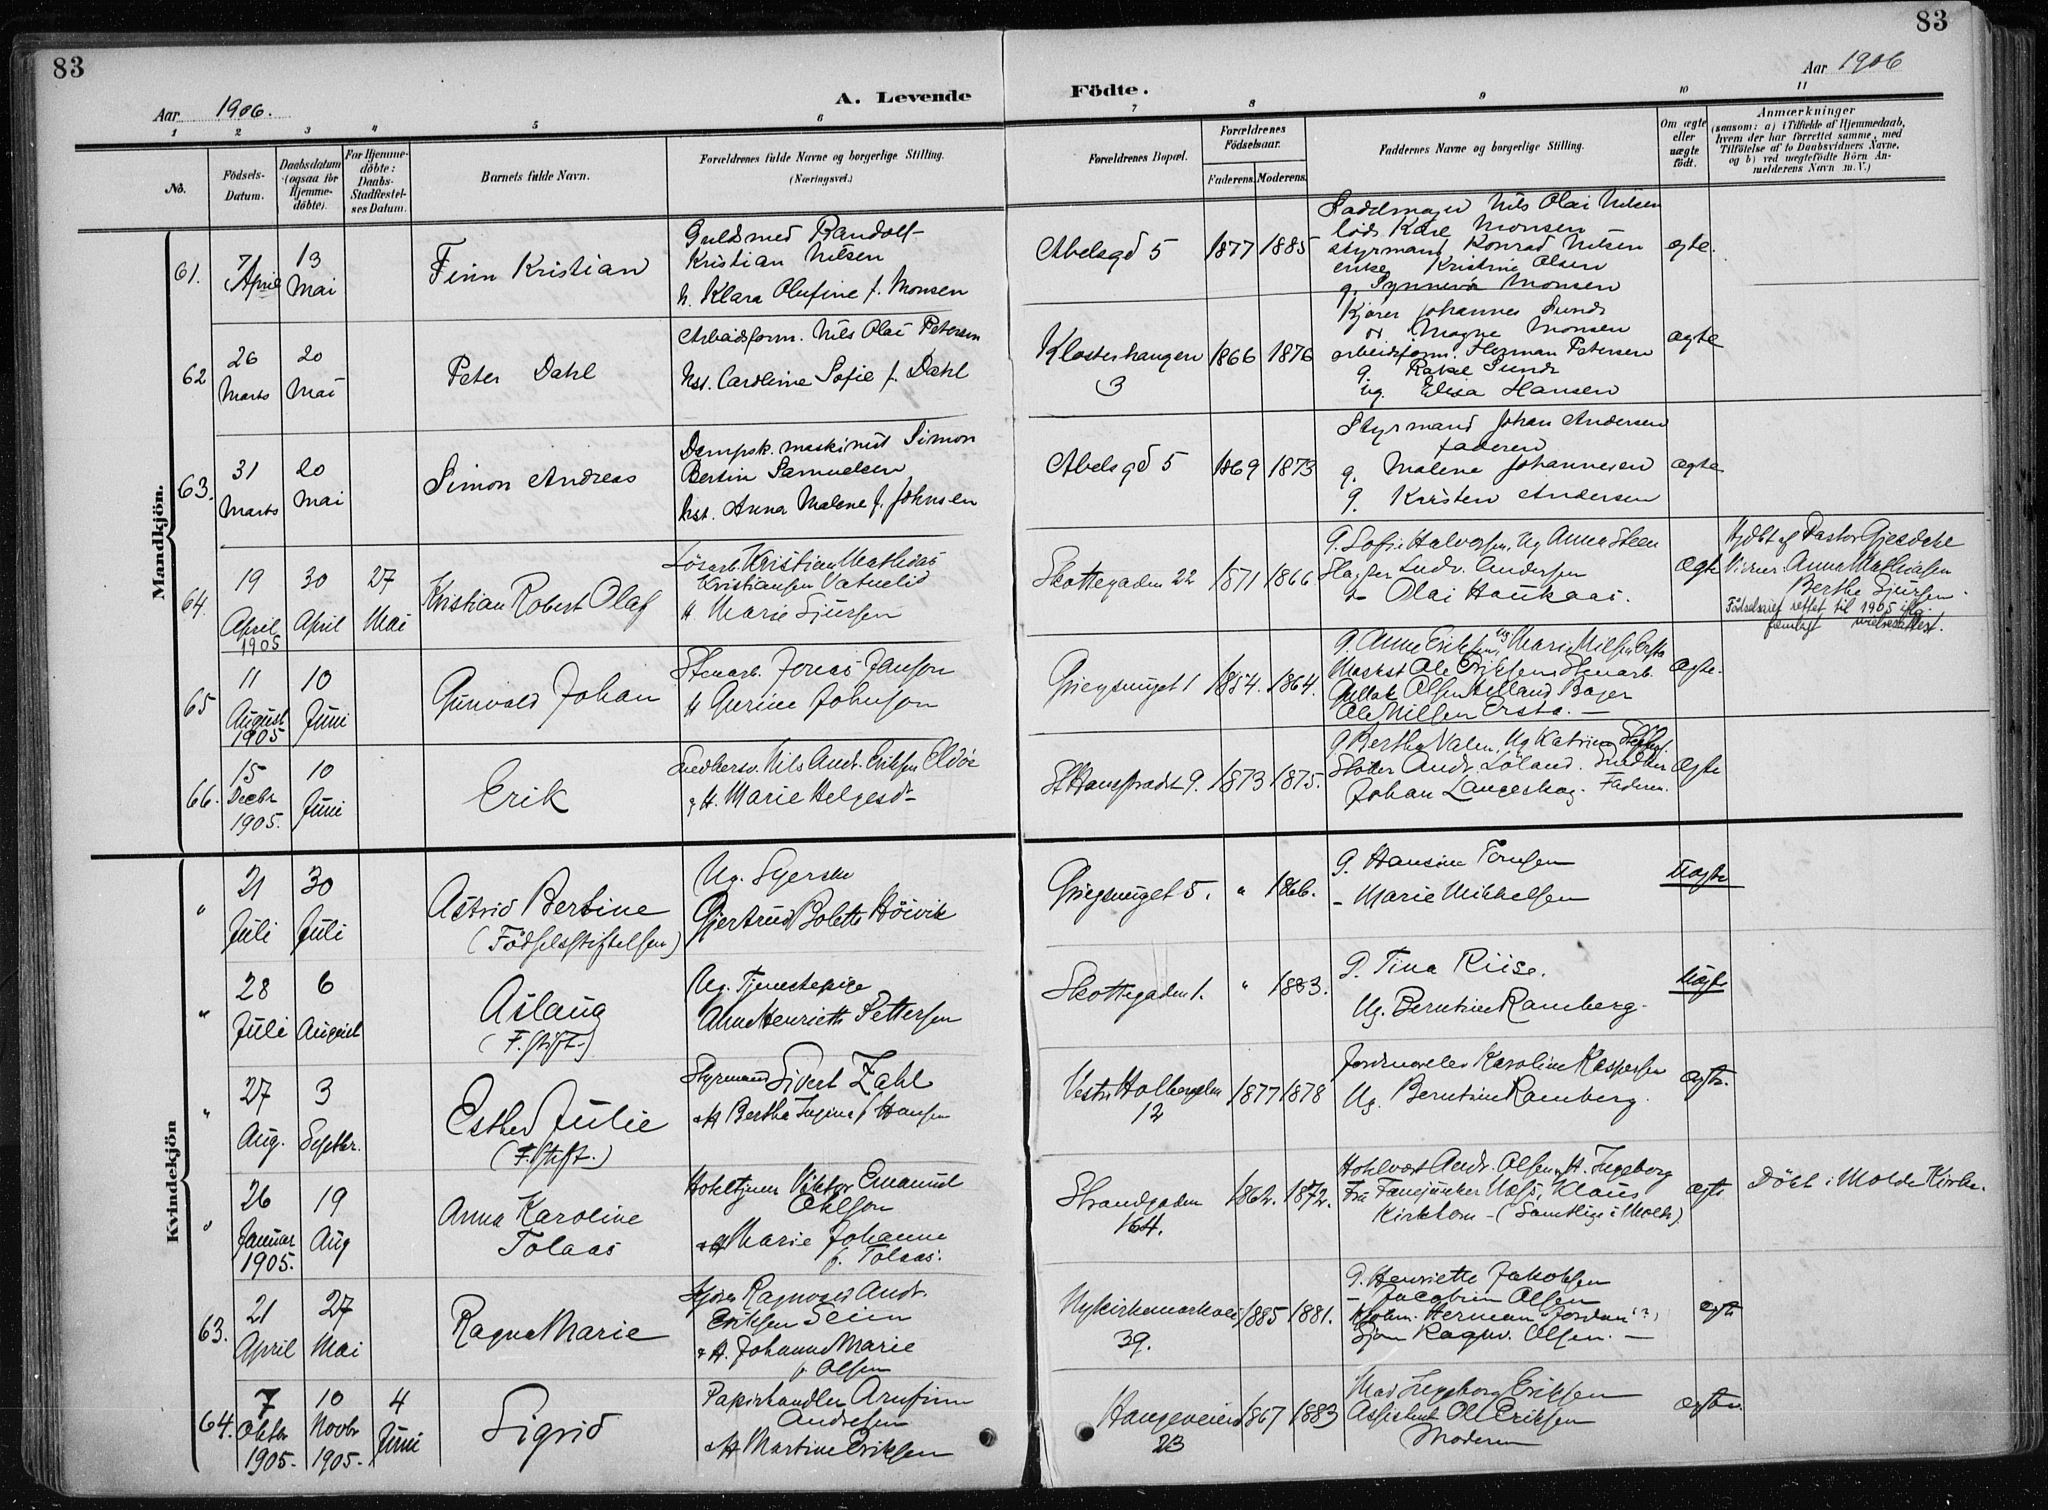 83
83
Aar 1906.
A. Levende Födte.
Aar 1906
1 2 3 4 5 6 7 8 9 10 11
No.
Födsels-Datum.
Daabsdatum (ogsaa för Hjemme-döbte).
For Hjemme-döbte: Daabs-Stadfæstel-ses Datum.
Barnets fulde Navn.
Forældrenes fulde Navne og borgerlige Stilling.
(Næringsvei.)
Forældrenes Bopæl.
Forældrenes Födselsaar.
Faderens. Moderens.
Faddernes Navne og borgerlige Stilling.
Om ægte eller uægte födt.
Anmærkninger
(saasom: a) i Tilfælde af Hjemmedaab, hvem der har forrettet samme, med Tilföielse af to Daabsvidners Navne, og b) ved uægtefödte Börn Anmelderens Navn m. V.)
Mandkjön.
61. 7 April 13 Mai
Finn Kristian
Guldsmed Randolf
Kristian Nilsen
h. Klara Olufine f. Monsen
Abelsgd 5 1877 1885
Sadelmager Nils Olai Nilsen
Karl Monsen
styrmand Konrad Nilsen
enke Kristine Olsen
g. Synneva Monsen
ægte.
62 26 Marts 20 Mai
Peter Dahl
Arbeidsform. Nils Olai Petersen
Hst. Caroline Sofie f. Dahl
Klosterhaugen 3 1866 1876
Kjører Johannes Sunde
Magne Monsen
arbeidsform. Herman Petersen
g. Rakel Sunde
ug. Elisa Hansen
ægte
63. 31 Marts 20 Mai
Simon Andreas
Dampsk. maskinist Simon
Bertin Samuelsen
Hst. Anna Malene f. Johnsen
Abelsgd 5 1869 1873
Styrmand Johan Andersen
faderen
g. Malene Johannesen
g. Kristen Andersen
ægte
64. 19 April 1905 30 April 27 Mai
Kristian Robert Olaf
Løsarb. Kristian Mathias
Kristiansen Vatnelid
H Marie Sjursen
Skottegaden 22 1871 1866
G. Sofie Halvorsen, Ug Anna Steen
Ludv. Andersen
Olai Haukaas.
ægte
Hjdbt af Pastor Gjesdahl
Vidner Anna Mathiasen
Berthe Sjursen.
Födselsaar rettet til 1905 iflg.
fremlagt vielsesattest.
65 11 August 1905 10 Juni
Gunvald Johan
Stenarb. Jonas Janson
H Gurine Johnson
Griegsmuget 1 1854. 1864.
G. Anna Eriksen, Ug Marie Nilsen Ersta
Maskst Ole Eriksen Stenarb.
Olsen Helland Bager
Ole Nilsen Ersta. —
ægte.
66. 15 Decbr 1905. 10 Juni
Erik
Nils Andr. Eriksen Eldöe
& H. Marie Helgesdr
St Hansstrædet 9. 1873 1875.
G Bertha Valen, Ug Katrine
Andr. Löland.
Johan Langeskog. Faderen.
ægte
Kvindekjön
" 21 Juli 30 Juli
Astrid Bertine
(Födselsstiftelsen)
Ug. Syerske
Gjertrud Bolette Höivik
Griegsmuget 5. " 1866.
G. Hansine Tomsen
- Marie Mikkelsen
Uægte
" 28 Juli 6 August
Aslaug
(F. stift.)
Ug. Tjenestepige
Anne Henriette Pettersen
Skottegaden 1. " 1883.
G. Tina Riise.
Ug. Berntine Ramberg.
Uægte
" 27 Aug. 3 Septbr.
Esther Julie
(F. stift.)
Styrmand Sivert Zahl
& H Bertha Ingine f Hansen
Vestre Holbergsalm 12 1877 1878
Jordmoreler Karoline Kaspersen
Ug. Berntine Ramberg.
ægte.
" 26 Januar 1905. 19 Aug
Anna Karoline
Tolaas
Hoteltjener Viktor Emanuel
Ohlson
& H Marie Johanne
f. Tolaas.
Strandgaden 164. 1862. 1872.
Andr. Olsen, H. Ingeborg
Klaus
Kirkhorn - (Samtlige i Molde)
ægte
Döbt i Molde Kirke.
63. 21 April 27 Mai
Ragna Marie
Sjöm. Ragnvald Andr.
Eriksen Seim
& H. Johanna Marie
f Olsen
Nykirkealmenning 39. 1885 1881.
G. Henriette Jakobsen
- Jacobine Olsen
Herman Jordan (?)
Sjöm Ragnv. Olsen. —
ægte
64. 7 Oktbr 1905. 10 Novbr 1905. 4 Juni
Sigrid
Papirhandler Arnfinn
Andresen
& H Martine Eriksen
Haugeveien 23 1867 1883
Mad Ingeborg Eriksen
Assistent Ole Eriksen
Moderen
ægte.